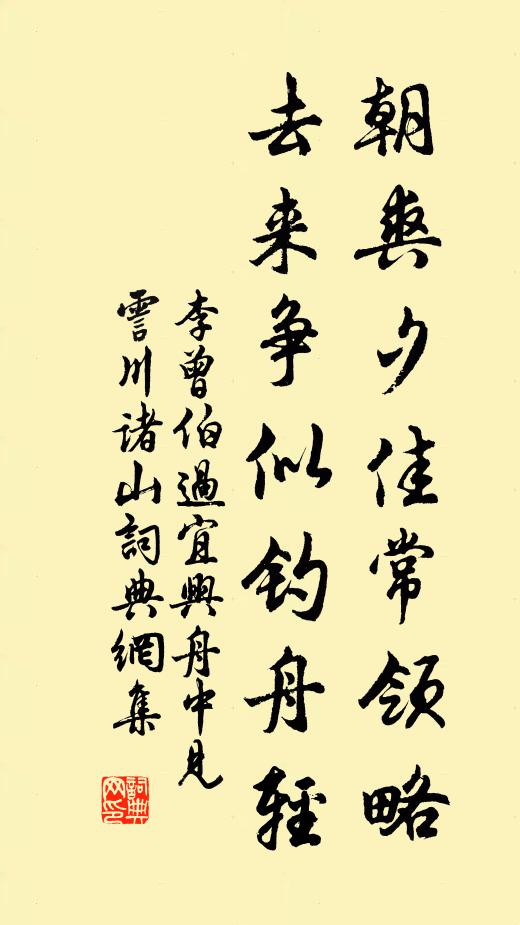 朝爽夕佳常領略
去来争似釣舟輕
李曾伯過宜興舟中見
霅川诸山詞典網集
詞典网印